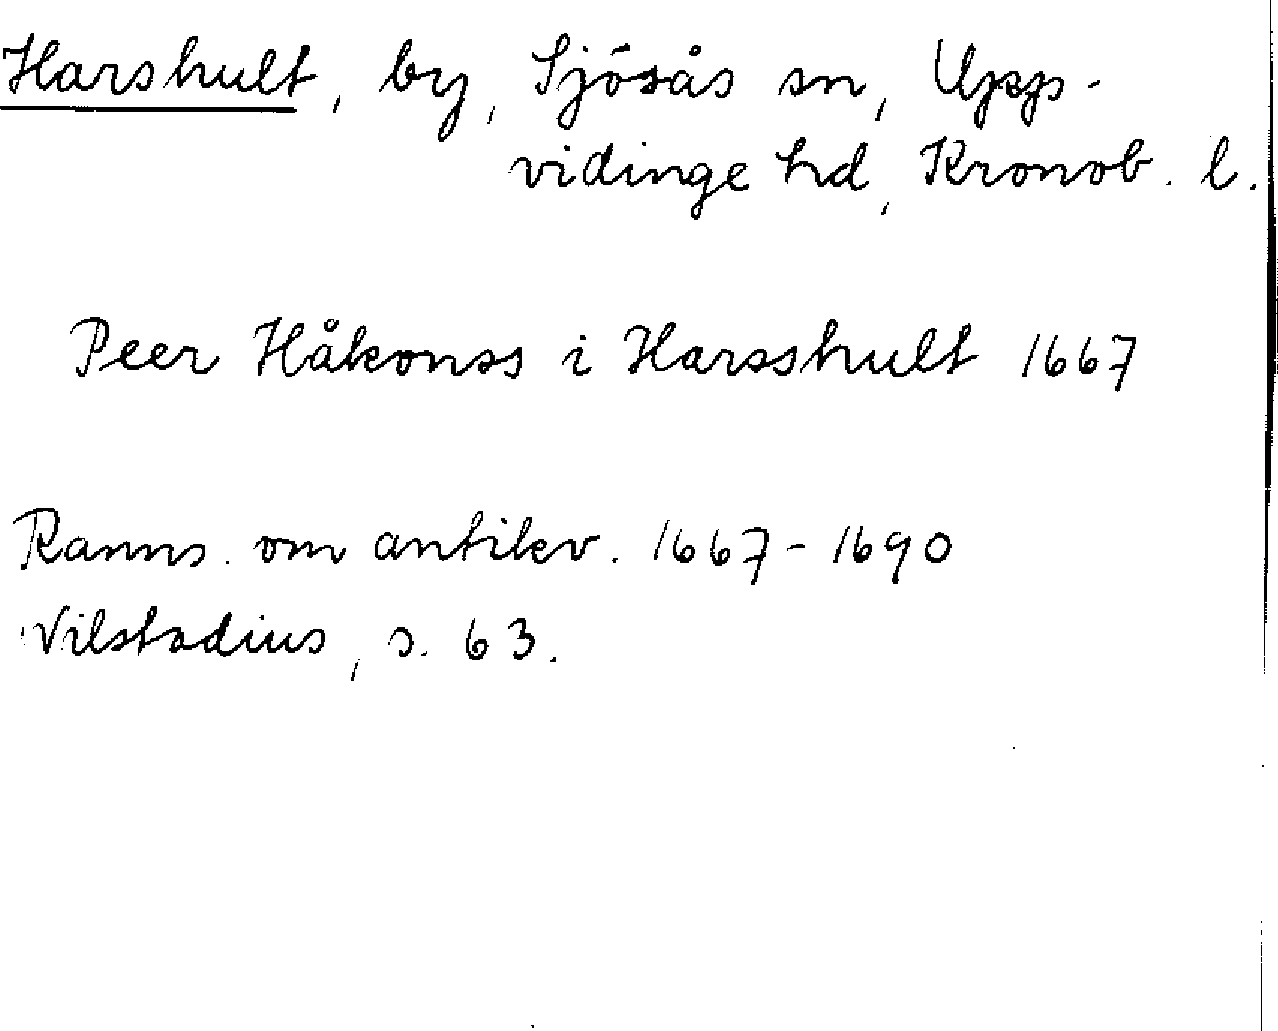 Harshult, by, Sjösås sn, Upp-
vidinge hd, Kronob. l.
Peer Håkonss i Harsshult 1667
Ranns. om antikv. 1667-1690
Vilstadius, s. 63.